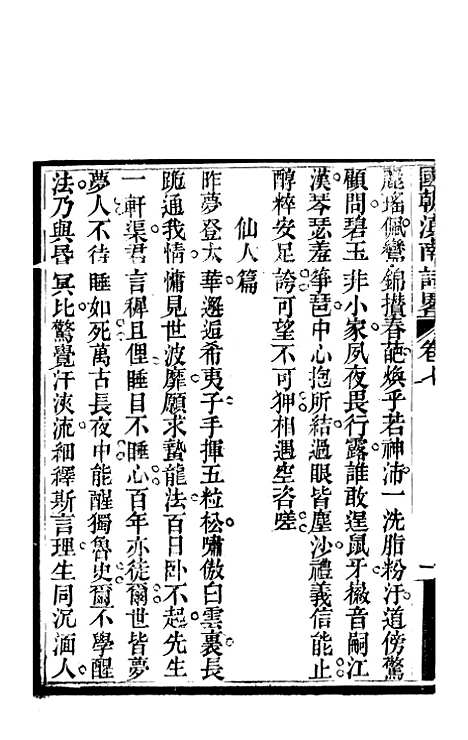 國朝滇南詩畧 卷七 一
麗瑤佩鸞錦攢春葩煥乎若神沛一洗脂粉汙道傍驚
顧問碧玉非小家夙夜畏行露誰敢逞鼠牙徽音嗣江
漢琴瑟羞箏琶中心抱所結過眼皆塵沙禮義信能止
醇粹安足誇可望不可狎相遇空咨嗟
仙人篇
昨夢登太華邂逅希夷子手揮五粒松嘯傲白雲裏長
跪通我情慵見世波靡願求蟄龍法百日卧不起先生
一軒渠君言稗且俚睡目不睡心百年亦徒爾世皆夢
夢人不待睡如死萬古長夜中能醒獨魯史爾不學醒
法乃與昏冥比驚覺汗浹流細繹斯言理生同沉湎人